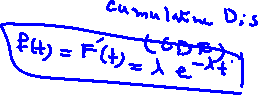 cumulative Dis
(CDF)
f(t) = F'(t) = λ e^{-λt}